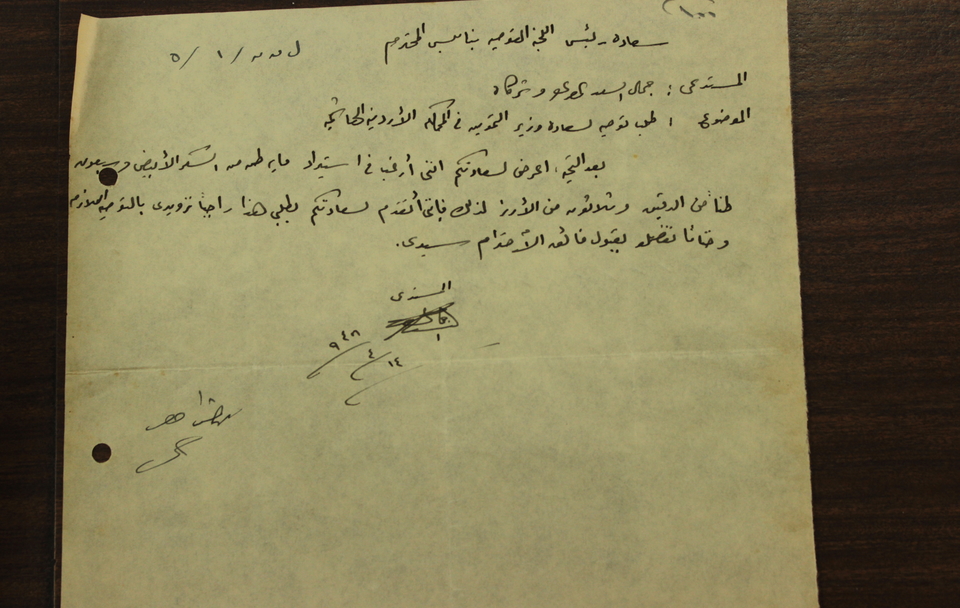 سعادة رئيس اللجنة القومية بنابلس المحترم
ل ق ن / ١ / ٥
المستدعي : جمال السعد وشركاه
الموضوع : طلب توصية لسعادة وزير التموين في المملكة الأردنية الهاشمية
بعد التحية، اعرض لسعادتكم انني أرغب في استيراد ماية طن من السكر الأبيض وسبعون
طناً من الدقيق وثلاثون من الأرز لذلك فانني أتقدم لسعادتكم بطلبي هذا راجياً تزويدي بالتوصية اللازمة
وختاماً تفضلوا بقبول فائق الأحترام سيدي.
المستدعي
١٤ / ٤ / ٩٤٨